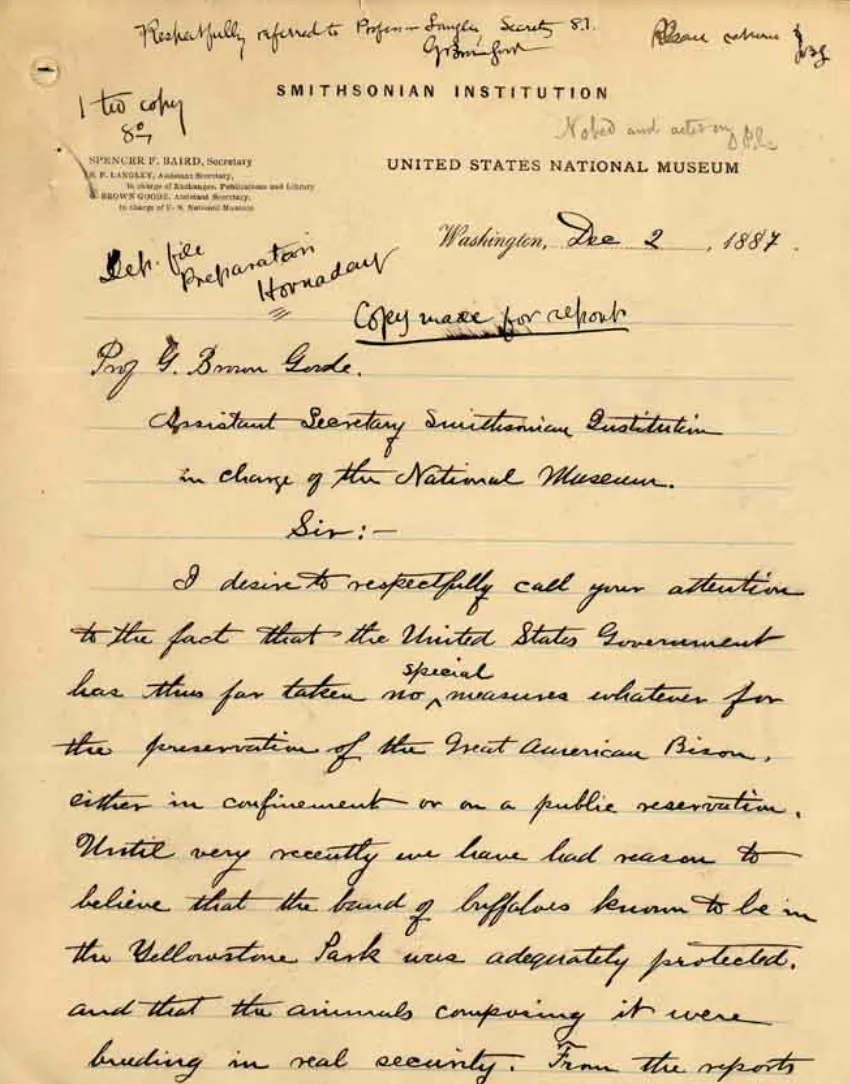 Respectfully referred to Professor Langley, Secretary S.I.
GBrownGoode
Please return
GBG
SMITHSONIAN INSTITUTION
1 two copy
Noted and acted on
SPENCER F. BAIRD, Secretary
S. P. LANGLEY, Assistant Secretary,
In charge of Exchanges, Publications and Library
G. BROWN GOODE, Assistant Secretary,
In charge of U. S. National Museum
UNITED STATES NATIONAL MUSEUM
Washington, Dec 2, 1887.
file
Preparation
Hornaday
Copy made for report
Prof G. Brown Goode.
Assistant Secretary Smithsonian Institution
in charge of the National Museum.
Sir:—
I desire to respectfully call your attention
to the fact that the United States Government
has thus far taken no ^special measures whatever for
the preservation of the Great American Bison,
either in confinement or on a public reservation.
Until very recently we have had reason to
believe that the band of buffaloes known to be in
the Yellowstone Park was adequately protected,
and that the animals composing it were
breeding in real security. From the reports